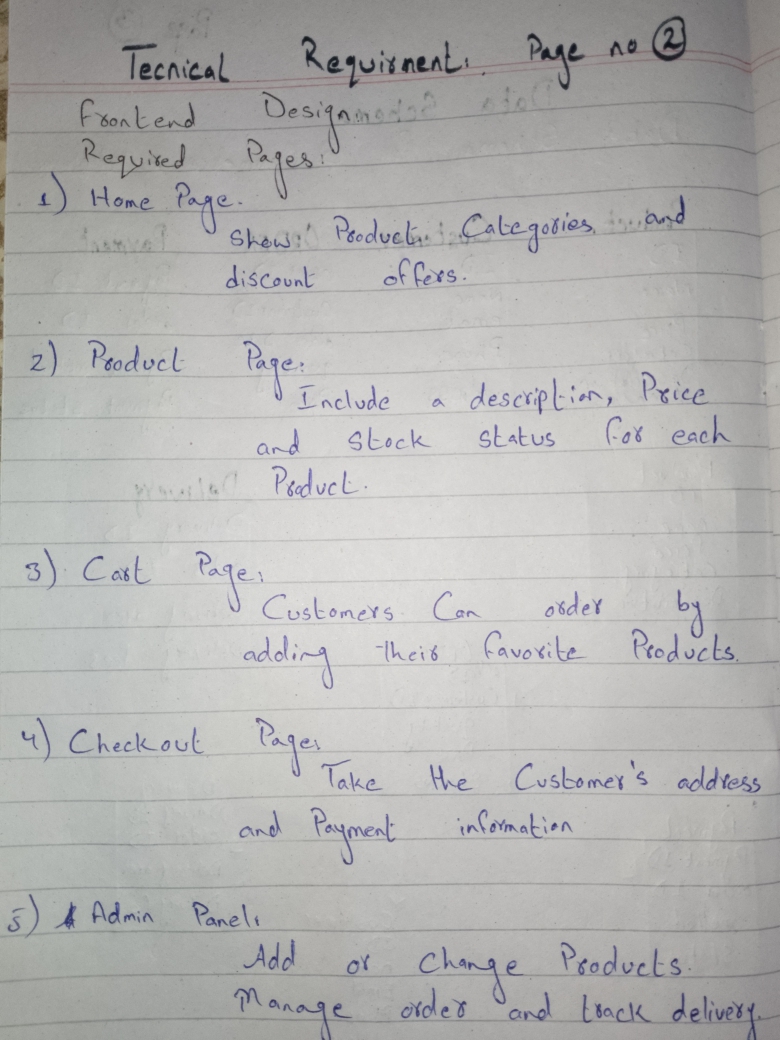 Tecnical Requirment: Page no 2
Frontend Design
Required Pages:
1) Home Page.
Show Product Categories and
discount offers.
2) Product Page:
Include a description, Price
and Stock status for each
Product.
3) Cart Page:
Customers Can order by
adding their favorite Products.
4) Checkout Page:
Take the Customer's address
and Payment information
5) Admin Panel:
Add or Change Products.
Manage order and track delivery.